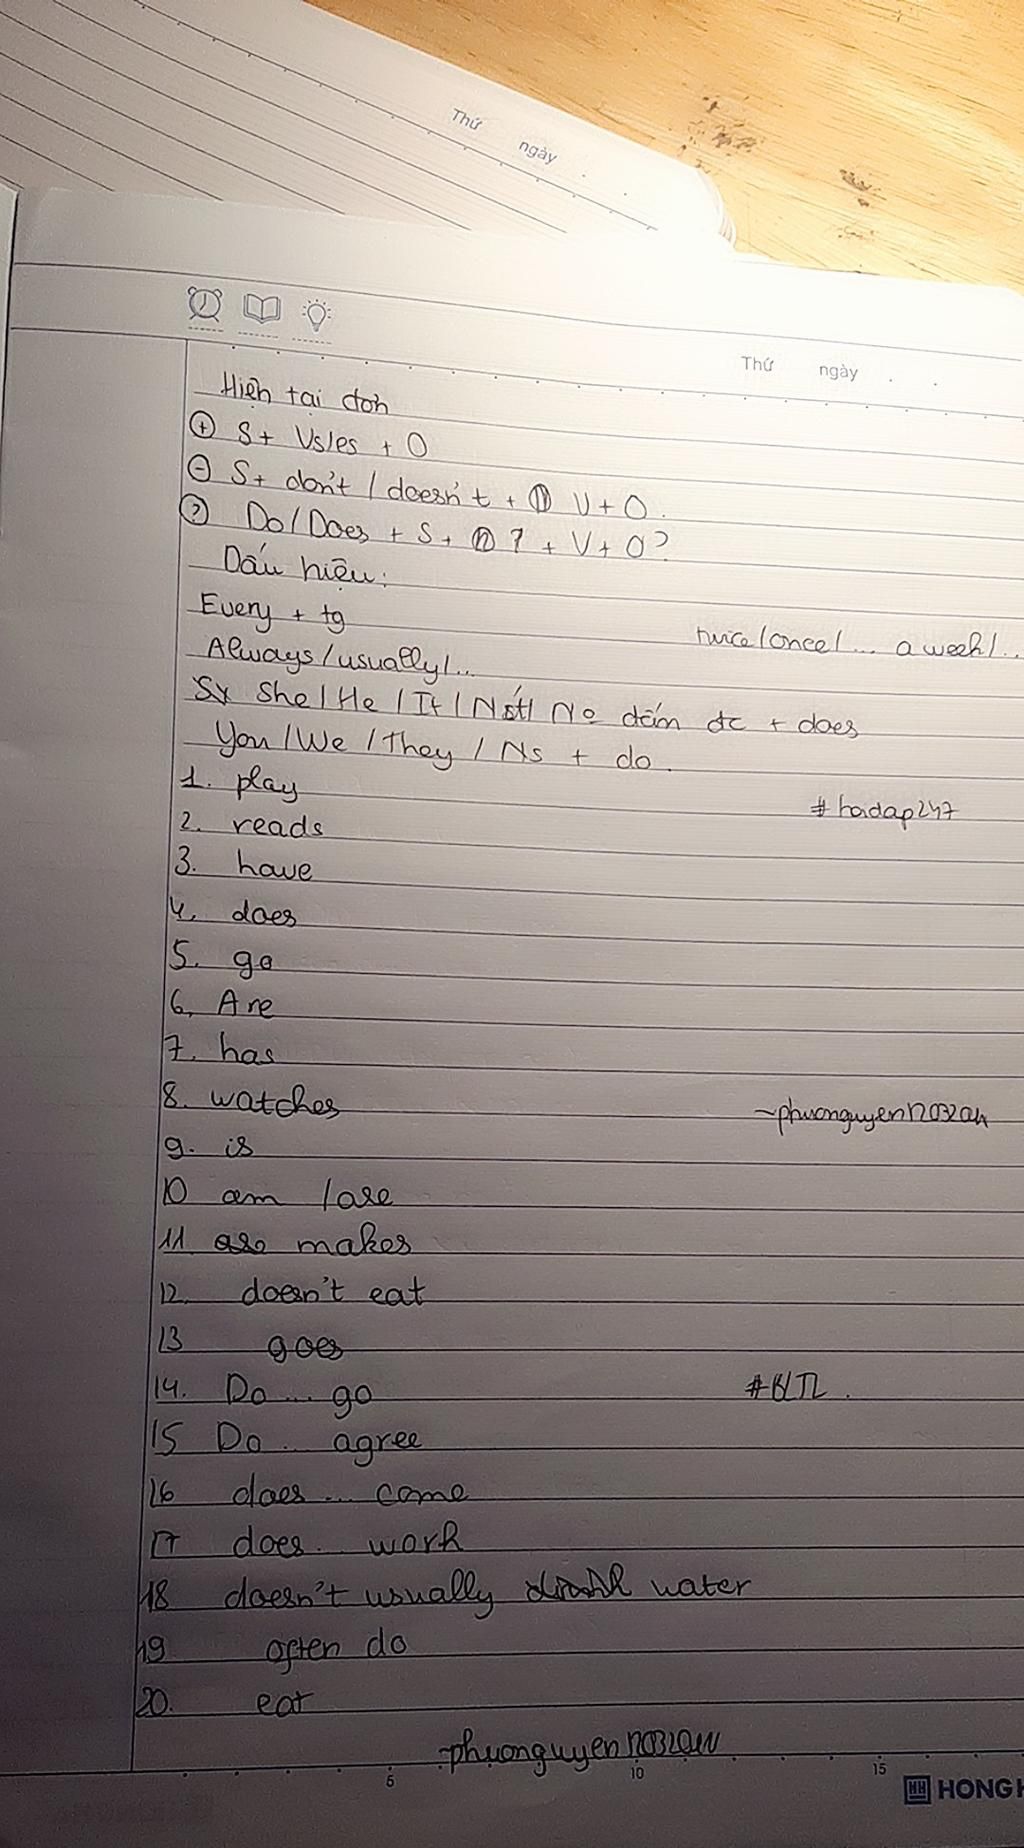 Thứ ngày
Thứ ngày
Hiện tại đơn
+ S + Vs/es + O
- S + don't / doesn't + V + O.
? Do / Does + S + ? + V + O?
Dấu hiệu:
Every + tg
twice / once / ... a week / ...
Always / usually / ...
She / He / It / Nsít / No đếm đc + does
You / We / They / Ns + do.
1. play
#hoidap247
2. reads
3. have
4. does
5. go
6, Are
7. has
8. watches
~phuonguyenn032011
9. is
10 am / are
11 makes
12. doesn't eat
13 goes
14. Do ... go
15 Do ... agree
16 does ... come
17 does .. work
18 doesn't usually drink water
19 often do
20. eat
~phuonguyenn032011
5 10 15
HH HONG H